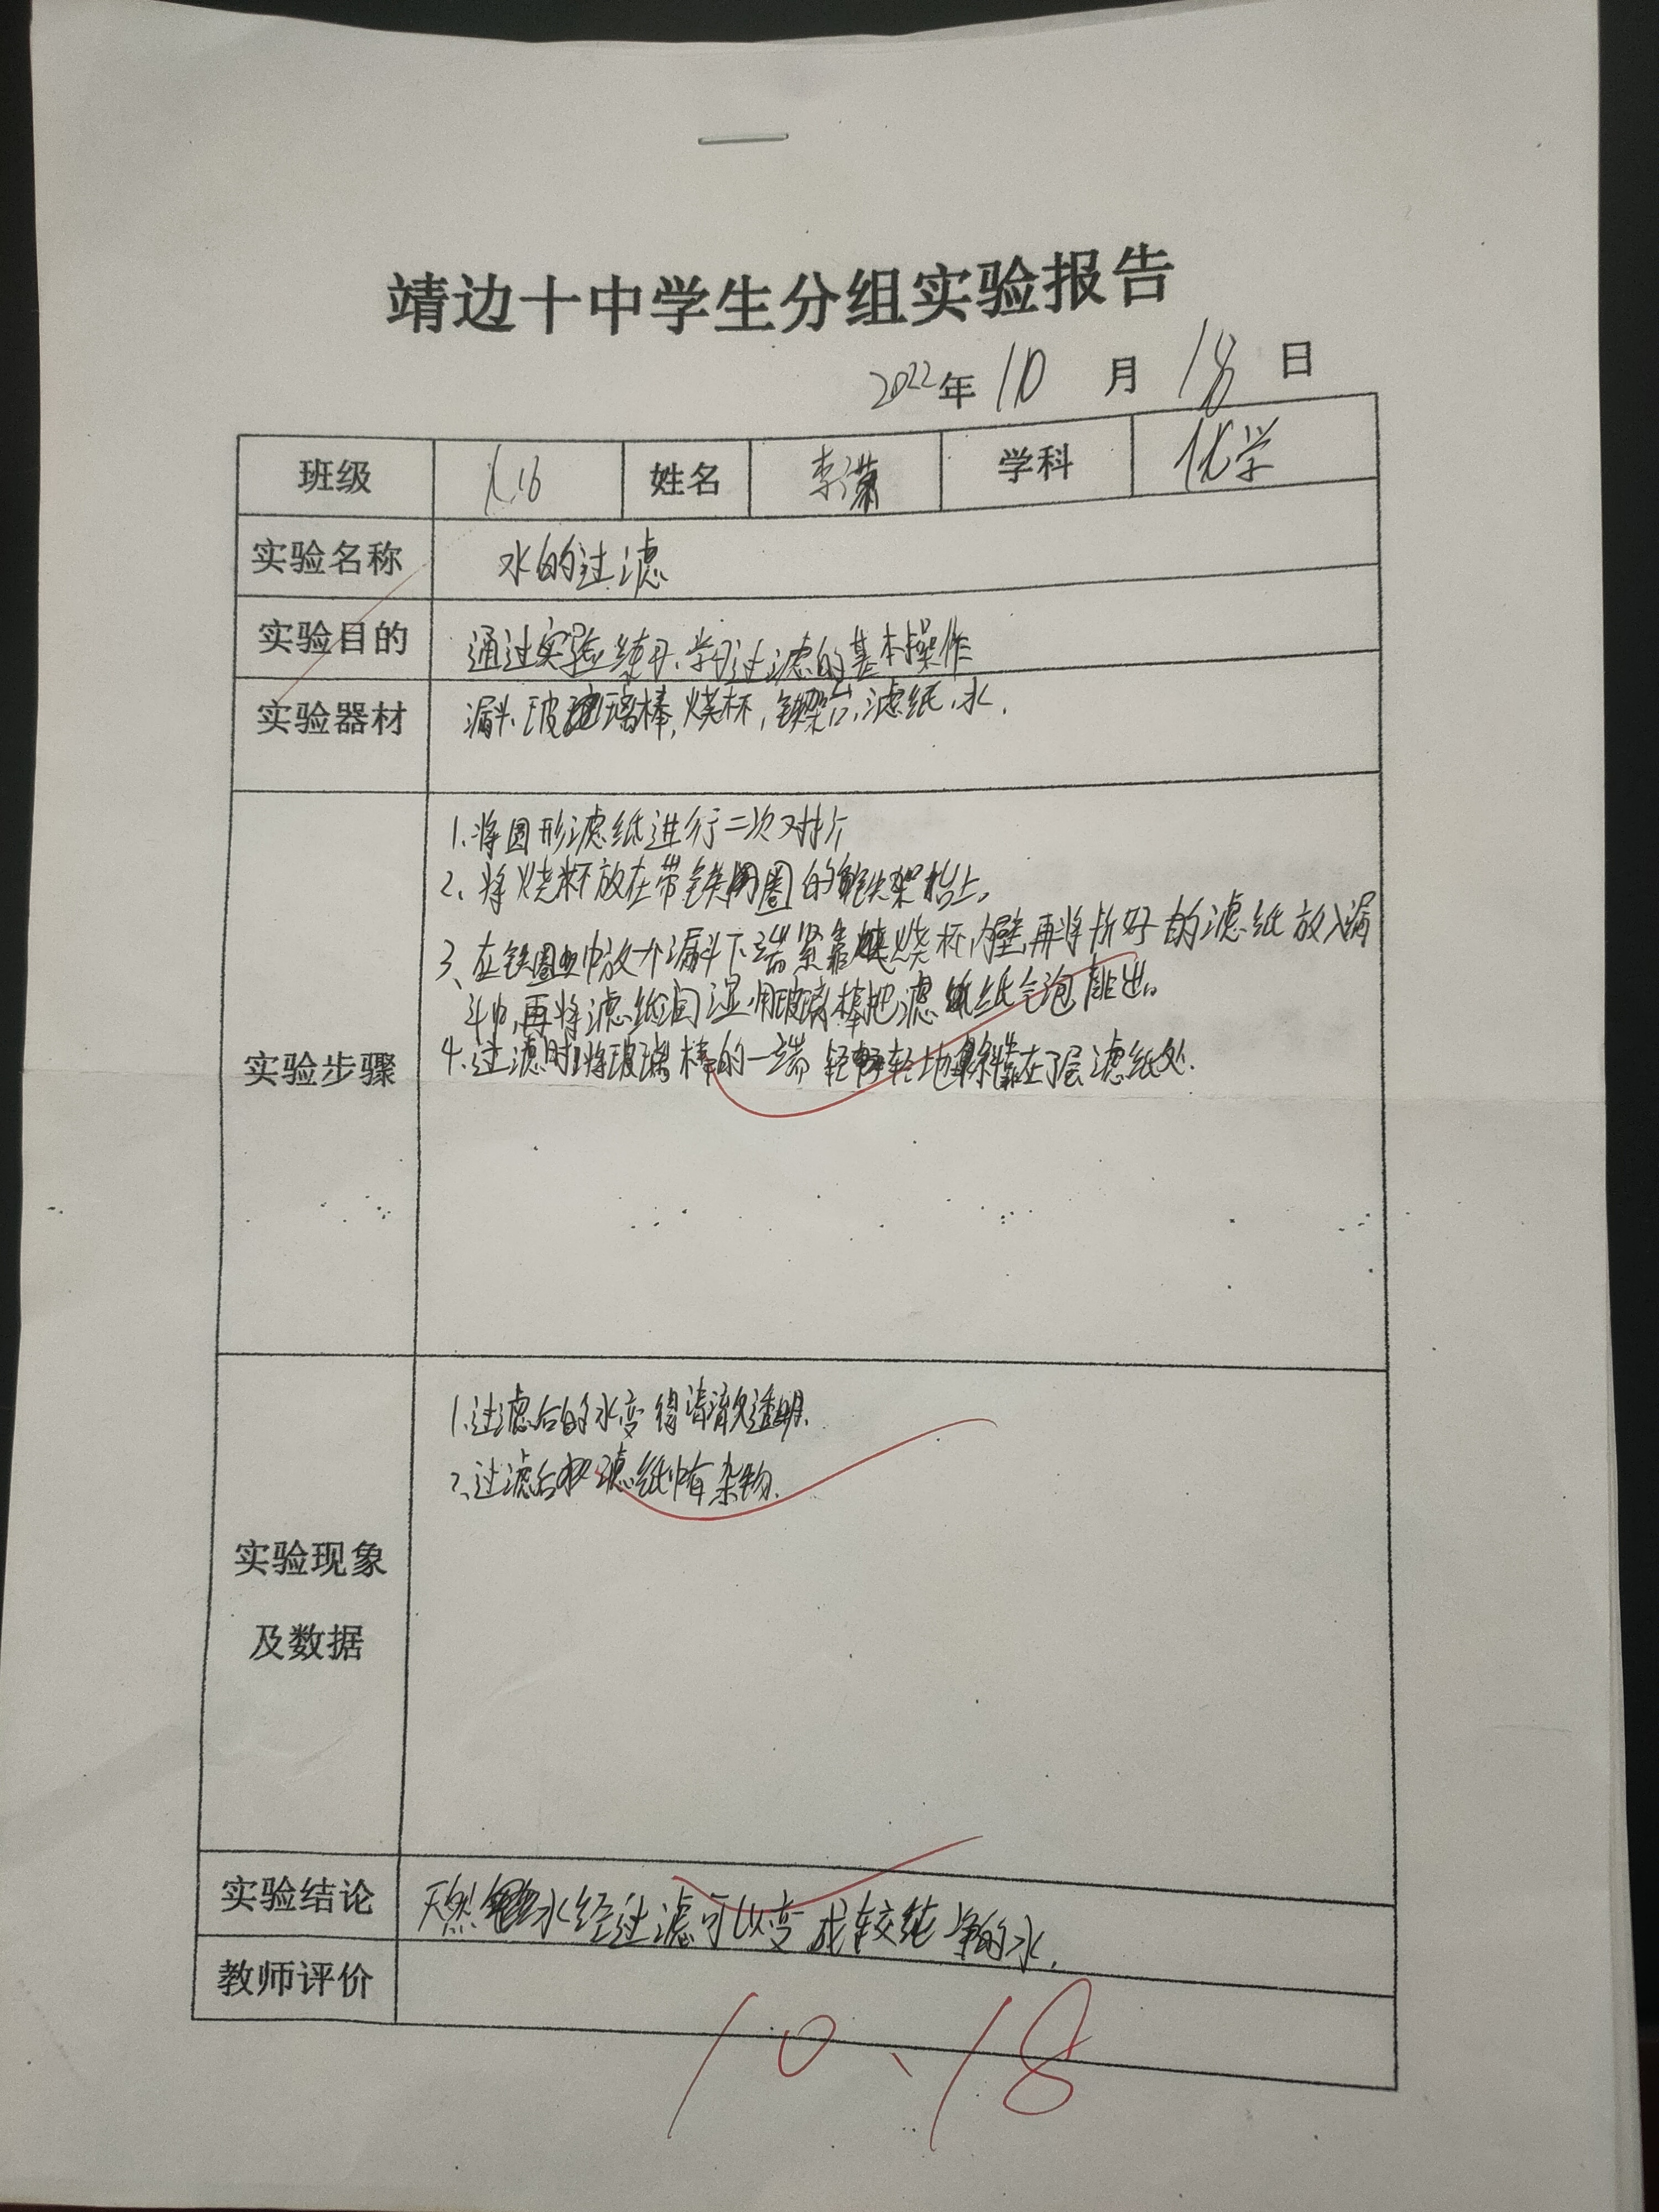 靖边十中学生分组实验报告
2022年 10 月 18 日
班级 姓名 李潇 学科 化学
实验名称 水的过滤
实验目的 通过实验练习、学习过滤的基本操作
实验器材 漏斗、玻璃棒,烧杯,铁架台,滤纸,水.
实验步骤
1、将圆形滤纸进行二次对折
2、将烧杯放在带铁圈的铁架抬上。
3、在铁圈中放个漏斗下端紧靠烧杯内壁,再将折好的滤纸放入漏
斗中,再将滤纸润湿,用玻璃棒把滤纸气泡排出。
4.过滤时,将玻璃棒的一端轻轻地斜靠在了层滤纸处.
实验现象
及数据
1、过滤后的水变得清澈透明.
2、过滤后滤纸中有杂物.
实验结论 天然水经过滤可以变成较纯净的水.
教师评价
10、18